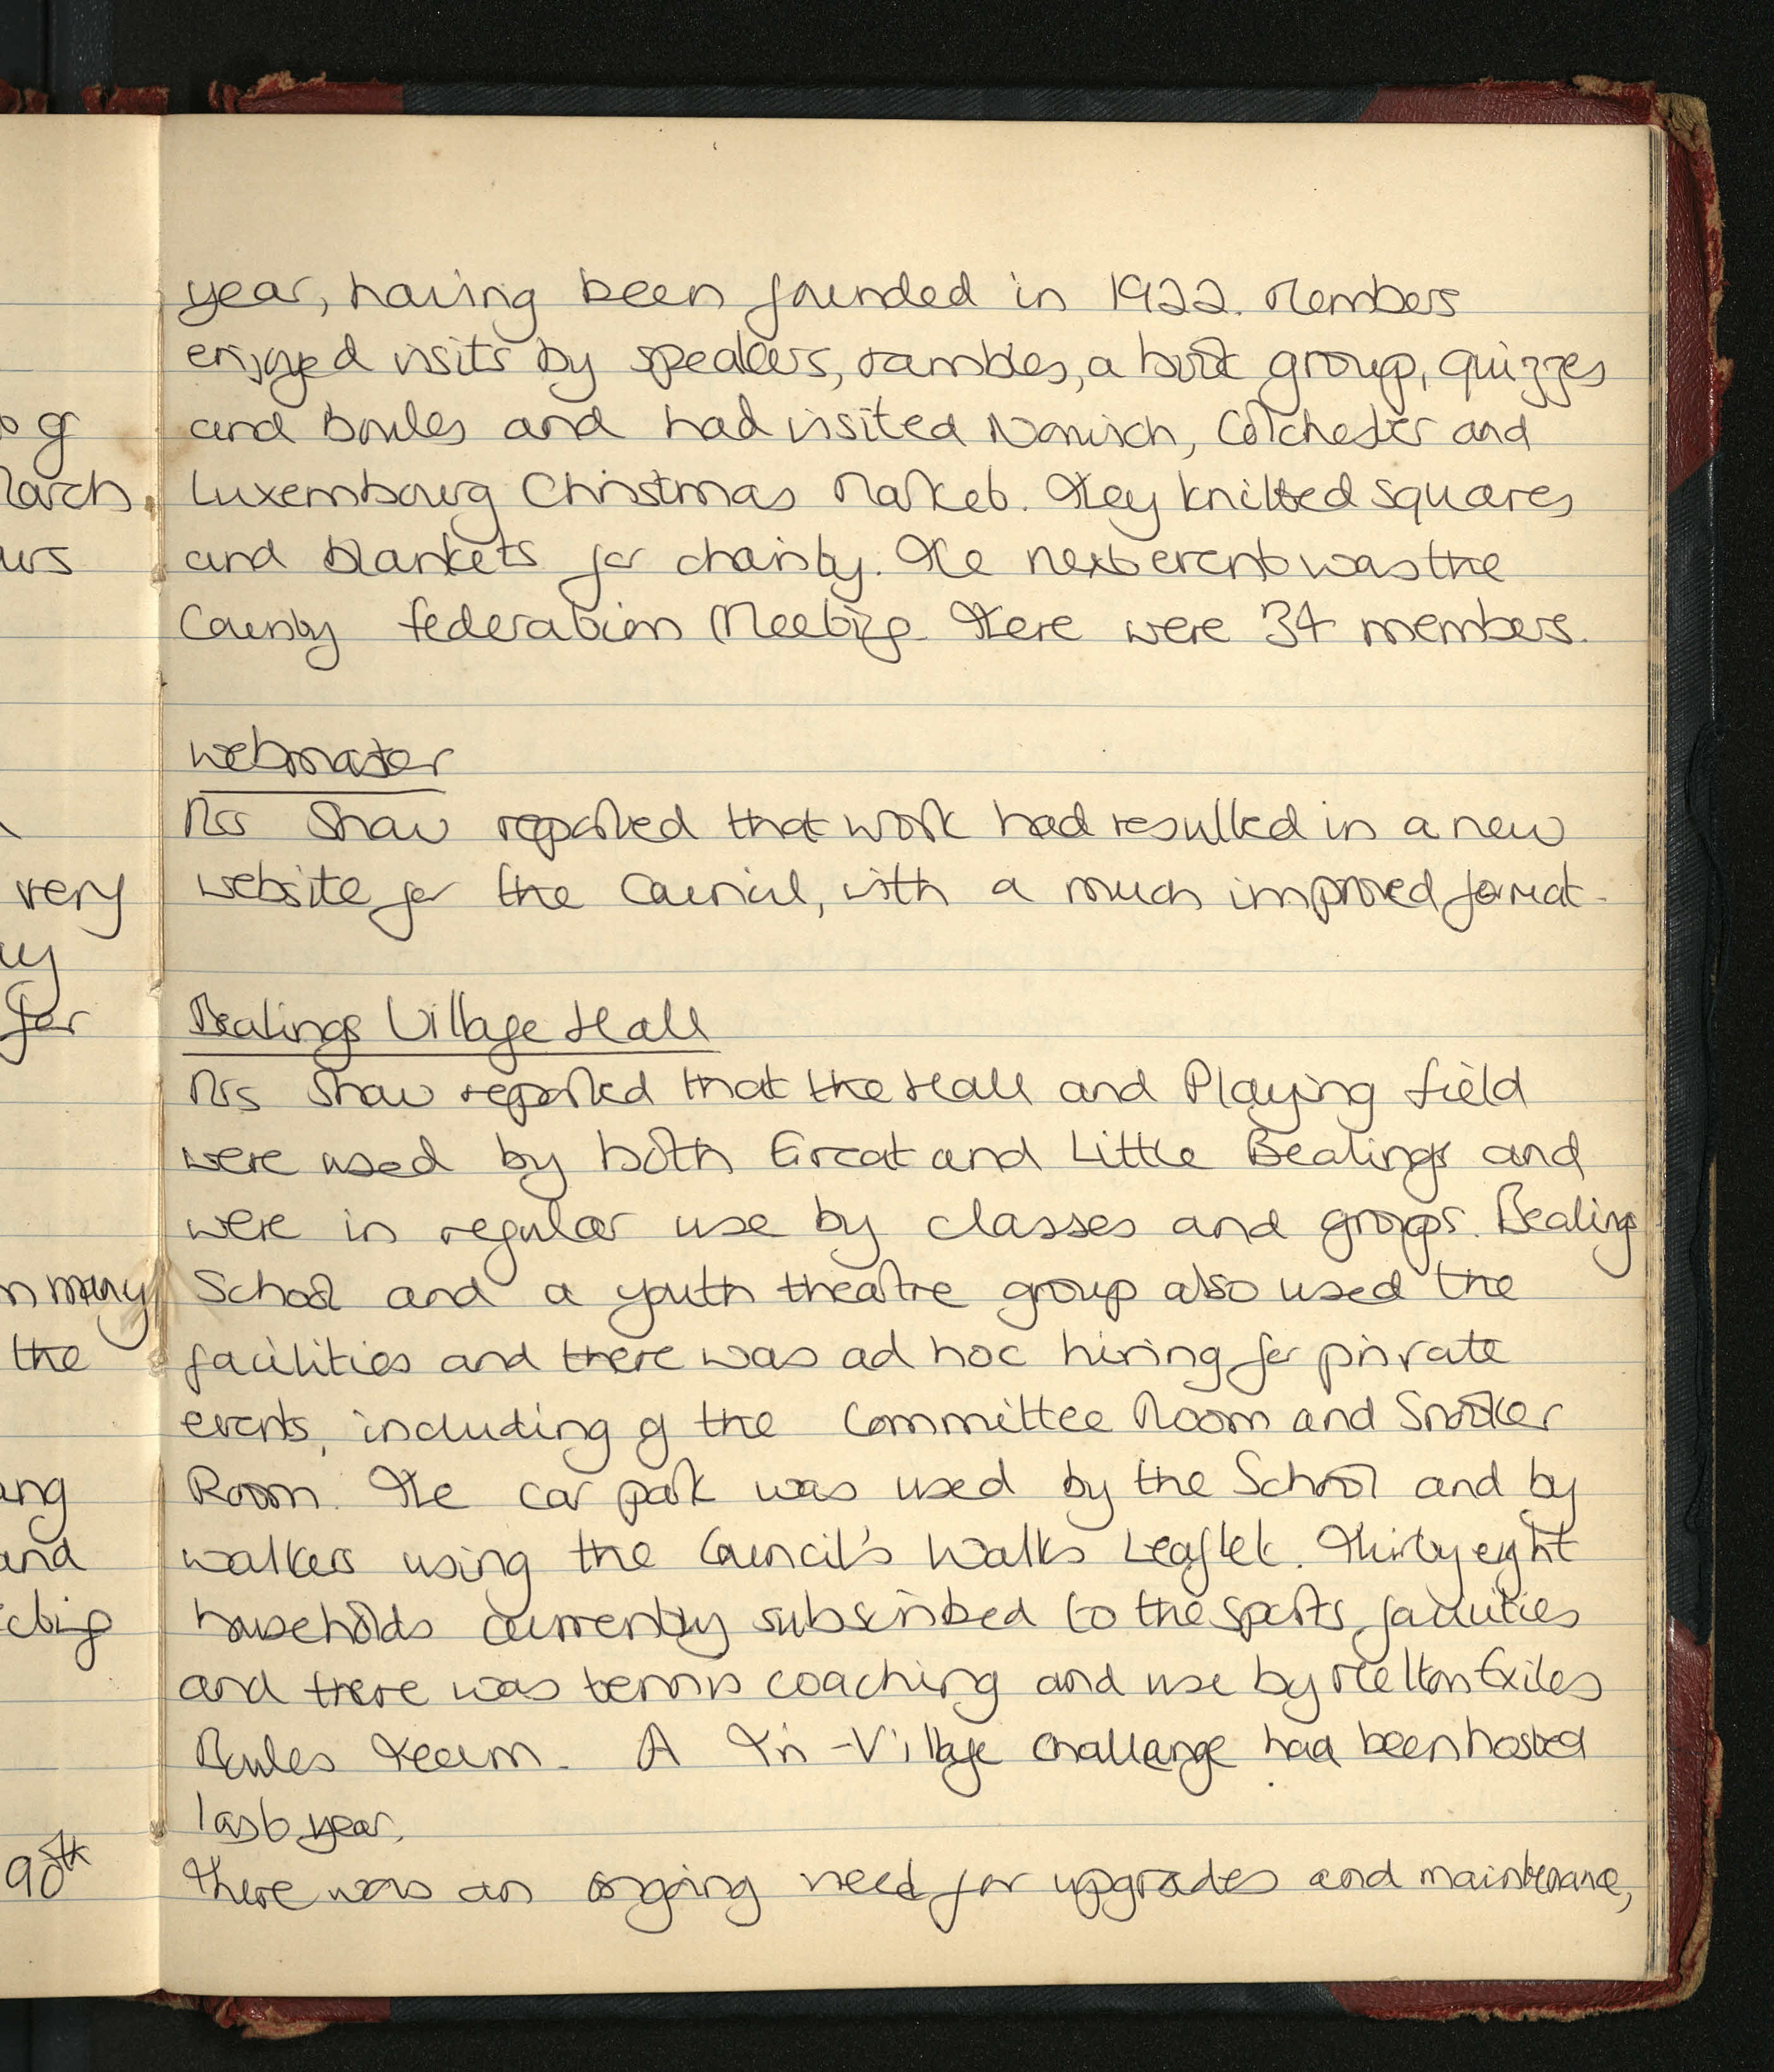 year, having been founded in 1922. Members
enjoyed visits by speakers, rambles, a book group, quizzes
and boules and had visited Norwich, Colchester and
Luxembourg Christmas Market. They knitted squares
and blankets for charity. The next event was the
County Federation Meeting. There were 34 members.
Webmaster
Mrs Shaw reported that work had resulted in a new
website for the Council, with a much improved format.
Bealings Village Hall
Mrs Shaw reported that the Hall and Playing Field
were used by both Great and Little Bealings and
were in regular use by classes and groups. Bealings
School and a youth theatre group also used the
facilities and there was ad hoc hiring for private
events, including of the Committee Room and Snooker
Room. The car park was used by the School and by
walkers using the Council's Walks Leaflet. Thirty eight
households currently subscribed to the sports facilities
and there was tennis coaching and use by Melton Exiles
Boules team. A Tri-Village Challenge had been hosted
last year.
There was an ongoing need for upgrades and maintenance,
of
March
very
for
many
the
and
90th